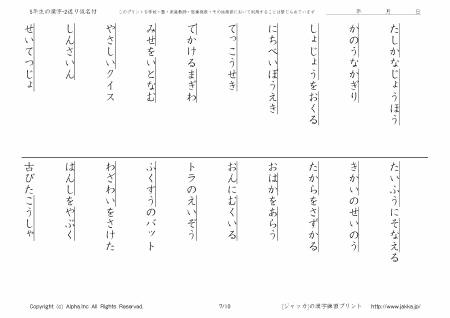 5年生の漢字-2送り仮名付
このプリントを学校・塾・家庭教師・医療機関・その他施設において利用することは禁じられています
年 月 日
たしかなじょうほう
かのうなかぎり
しょじょうをおくる
にちべいぼうえき
てっこうせき
でかけるまぎわ
みせをいとなむ
やさしいクイス
しんさいん
せいてつじょ
たいふうにそなえる
きかいのせいのう
たからをさずかる
おはかをあらう
おんにむくいる
トラのえいぞう
ふくすうのバット
わざわいをさけた
はんしをやぶく
古びたこうしゃ
Copyright (c) Alpha.Inc All Rights Reserved.
7/10
[ジャッカ]の漢字練習プリント http://www.jakka.jp/